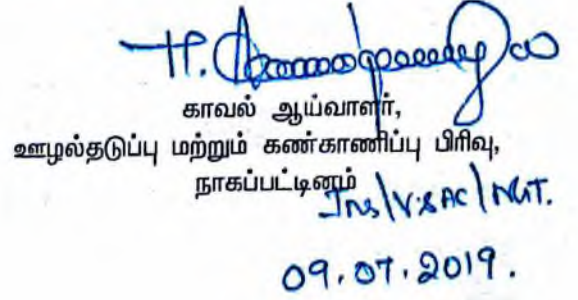 காவல் ஆய்வாளர்,
ஊழல்தடுப்பு மற்றும் கண்காணிப்பு பிரிவு,
நாகப்பட்டினம்
Ins/V&AC/NGT.
09.07.2019.